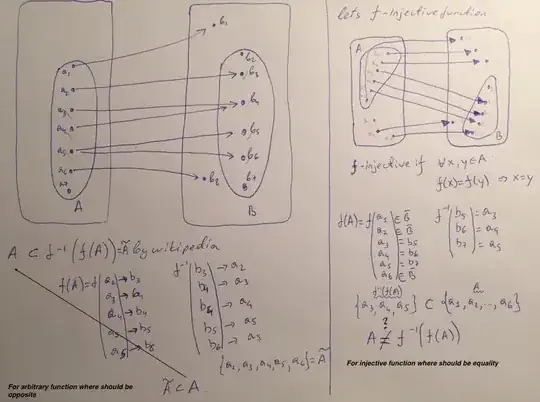 b₁
b₂
a₁
b₃
a₂
a₃
b₄
a₄
b₅
a₅
b₆
a₆
b₈
b₇
a₇
A
B
A ⊂ f⁻¹(f(A))=Ã by wikipedia
f(A)=f
a₂ → b₃
a₃ → b₄
a₄ → b₄
a₅ → b₅
a₅ → b₆
f⁻¹
b₃ → a₂
b₄ → a₃
b₄ → a₄
b₅ → a₅
b₆ → a₅
{a₂, a₃, a₄, a₅, a₆}=Ã
Ã ⊂ A
For arbitrary function where should be
opposite
lets f-Injective function
A
B
f-injective if ∀x,y∈A
f(x)=f(y) ⇒ x=y
f(A)=f
a₁ ∈ B̄
a₂ ∈ B̄
a₃ = b₅
a₄ = b₆
a₅ = b₇
a₆ ∈ B̄
f⁻¹
b₅ = a₃
b₆ = a₄
b₇ = a₅
f⁻¹(f(A))
A
{a₃, a₄, a₅} ⊂ {a₁, a₂, .., a₆}
?
A ≠ f⁻¹(f(A))
For injective function where should be equality